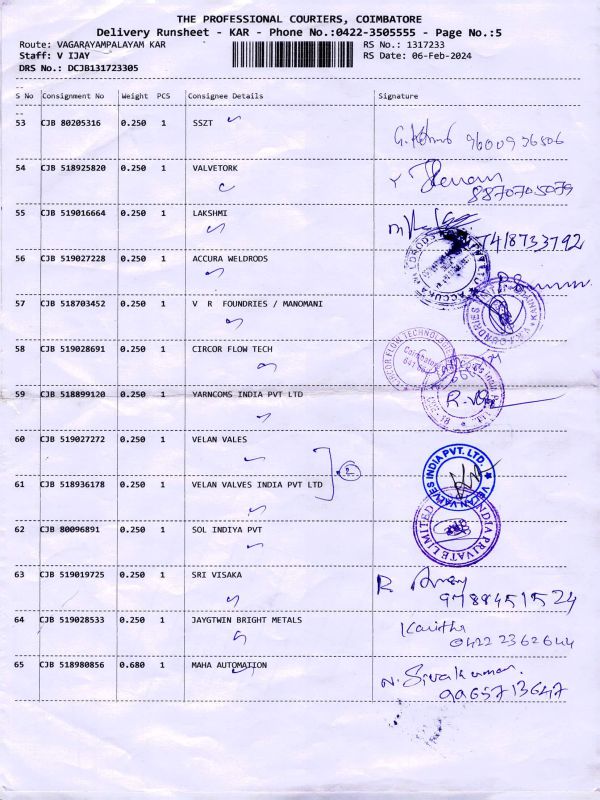 THE PROFESSIONAL COURIERS, COIMBATORE
Delivery Runsheet - KAR - Phone No.:0422-3505555 - Page No.:5
Route: VAGARAYAMPALAYAM KAR
RS No.: 1317233
Staff: V IJAY
RS Date: 06-Feb-2024
DRS No.: DCJB131723305
S No Consignment No Weight PCS Consignee Details Signature
53 CJB 80205316 0.250 1 SSZT
9600936506
54 CJB 518925820 0.250 1 VALVETORK
8870705079
55 CJB 519016664 0.250 1 LAKSHMI
7418733792
56 CJB 519027228 0.250 1 ACCURA WELDRODS
57 CJB 518703452 0.250 1 V R FOUNDRIES / MANOMANI
58 CJB 519028691 0.250 1 CIRCOR FLOW TECH
CIRCOR FLOW TECHNOLOG
Coimbatore
59 CJB 518899120 0.250 1 YARNCOMS INDIA PVT LTD
60 CJB 519027272 0.250 1 VELAN VALES
2
VELAN VALVES INDIA PVT. LTD.
61 CJB 518936178 0.250 1 VELAN VALVES INDIA PVT LTD
62 CJB 80096891 0.250 1 SOL INDIYA PVT
INDIA PRIVATE LIMITED
63 CJB 519019725 0.250 1 SRI VISAKA
9788451524
64 CJB 519028533 0.250 1 JAYGTWIN BRIGHT METALS
Kavitha
0422 2362644
65 CJB 518980856 0.680 1 MAHA AUTOMATION
N. Sivakumar
9965713647